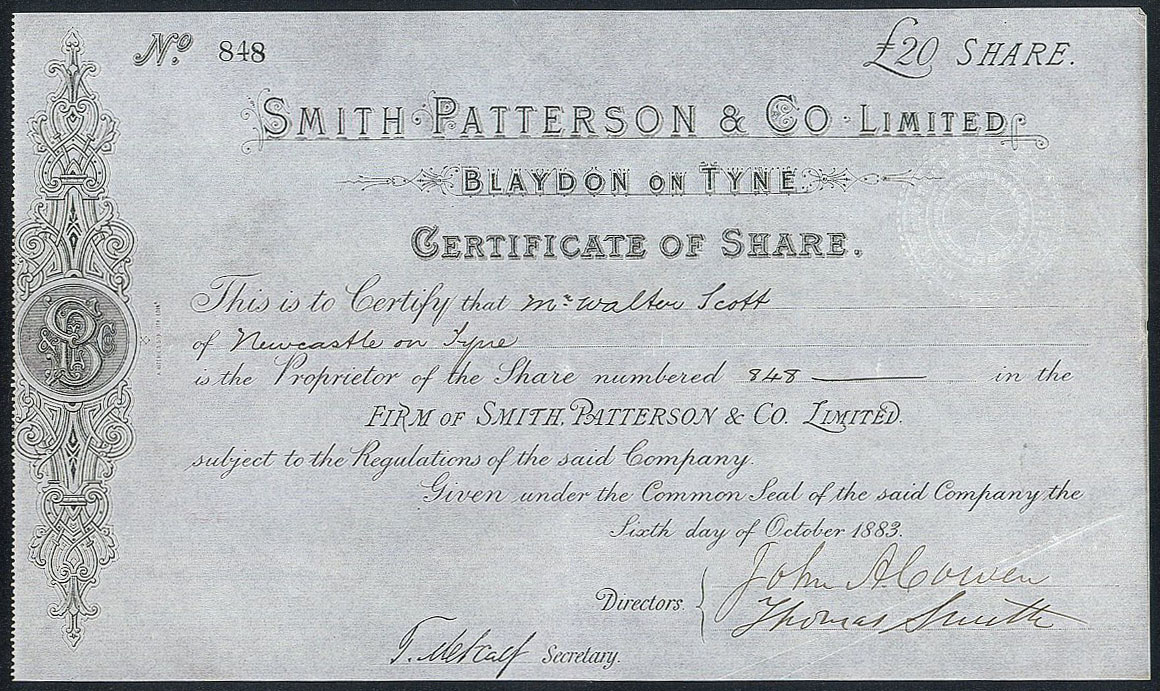 No. 848
£20 SHARE.
SMITH · PATTERSON & CO · LIMITED
BLAYDON ON TYNE
CERTIFICATE OF SHARE.
This is to Certify that Mr. Walter Scott
of Newcastle on Tyne
is the Proprietor of the Share numbered 848 in the
FIRM OF SMITH, PATTERSON & CO. LIMITED.
subject to the Regulations of the said Company.
Given under the Common Seal of the said Company the
Sixth day of October 1883.
John A. Cowen
Directors.
Thomas Smith
T. Metcalf Secretary.